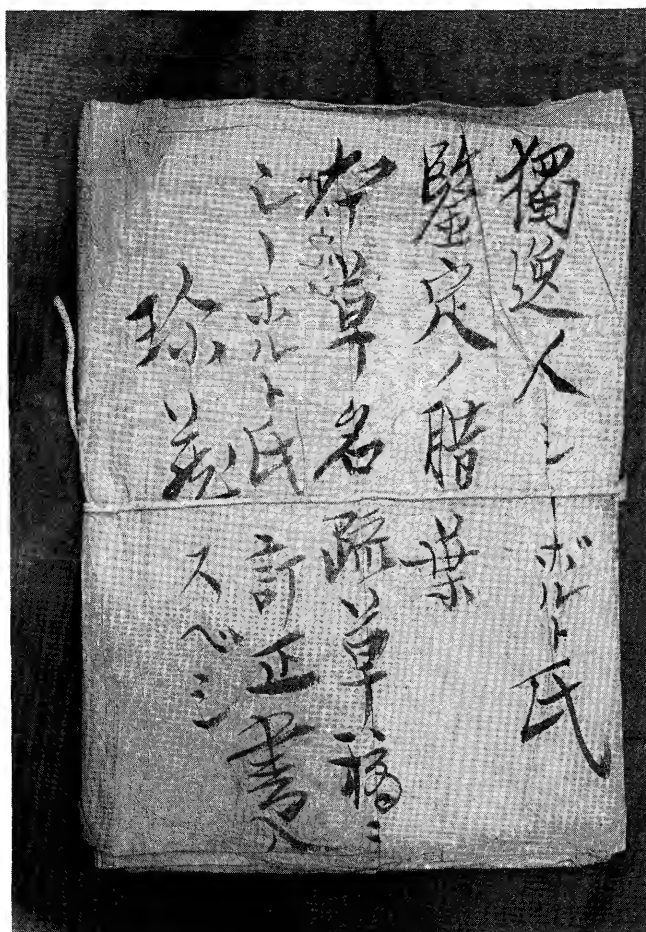 獨逸人シーボルト氏
鑒定ノ腊葉
本草名疏草稿ニ
シーボルト氏訂正書入
珍藏スベシ